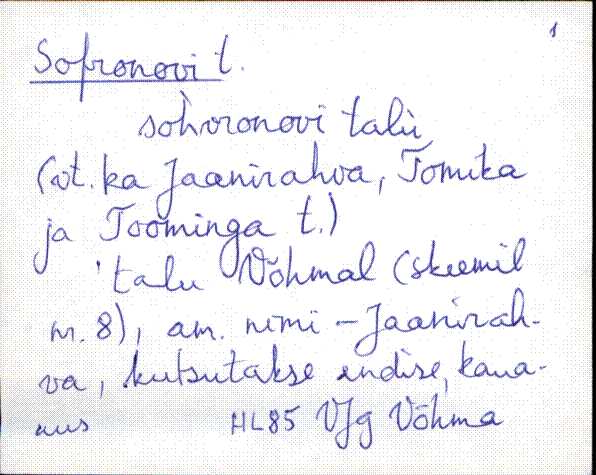 1
Sofronovi t.
sòhvronovi talù
(vt. ka Jaanirahva, Tomika
ja Toominga t.)
'talu Võhmal (skeemil
nr. 8), am. nimi – Jaanirah-
va, kutsutakse endise,
HL85 VJg Võhma